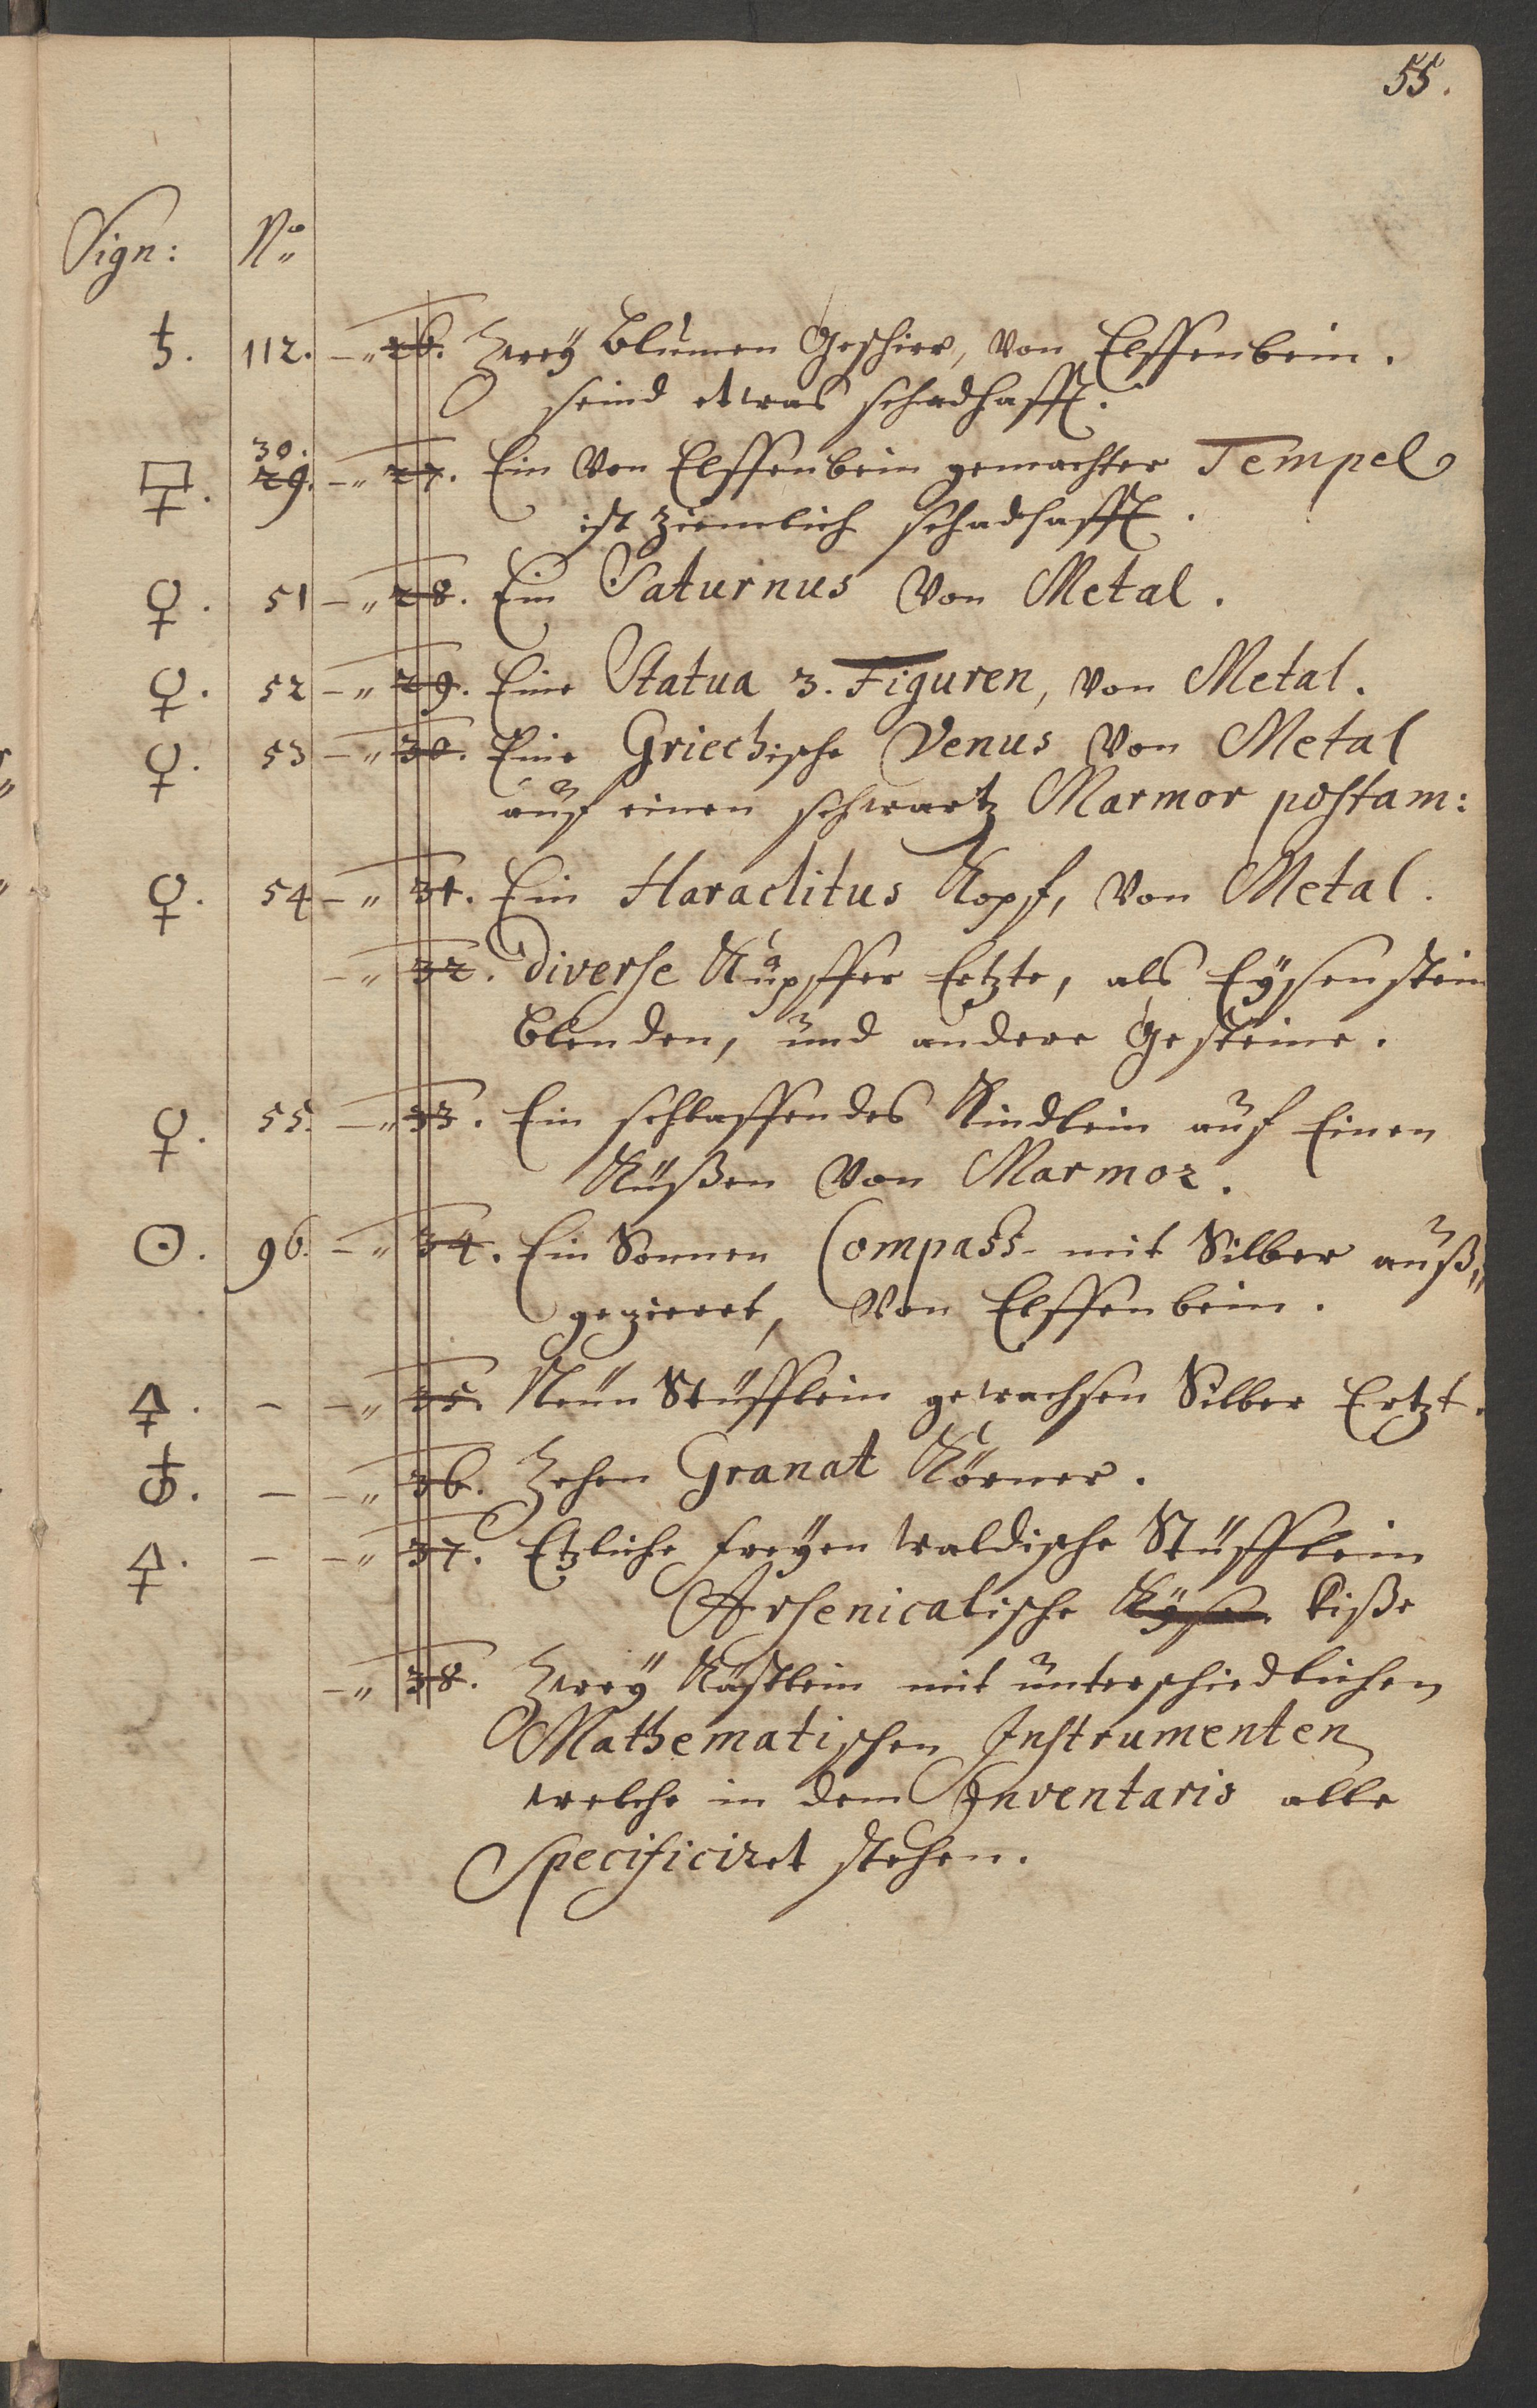 55.
Sign: No
♄. 112. -„ 26. Zweÿ Blumen Geschirr, von Elffenbein.
seind etwas schadhafft.
30.
29. -„ 27. Ein von Elffenbein gemachter Tempel
ist ziemlich schadhafft.
♀. 51 -„ 28. Ein Saturnus von Metal.
♀. 52 -„ 29. Eine Statua 3. Figuren, von Metal.
♀. 53 -„ 30. Eine Griechische Venus von Metal
auf einen schwartz Marmor postam:
♀. 54 -„ 31. Ein Haraclitus Kopf, von Metal.
-„ 32. Diverse Kupffer Ertzte, als Eysenstein
Blenden, und andere Gesteine.
♀. 55. -„ 33. Ein schlaffendes Kindlein auf Einen
Küßen von Marmor.
☉. 96. -„ 34. Ein Sonnen Compass mit Silber auß„
gezieret, von Elffenbein.
🜍. - -„ 35. Neun Stüfflein gewachsen Silber Ertzt.
♁. - -„ 36. Zehen Granat Körner.
🜍. - -„ 37. Etzliche freyen waldische Stüfflein
Arsenicalische Kiße
-„ 38. Zweÿ Kästlein mit unterschiedlichen
Mathematischen Instrumenten
welche in dem Inventario alle
Specificiret stehen.